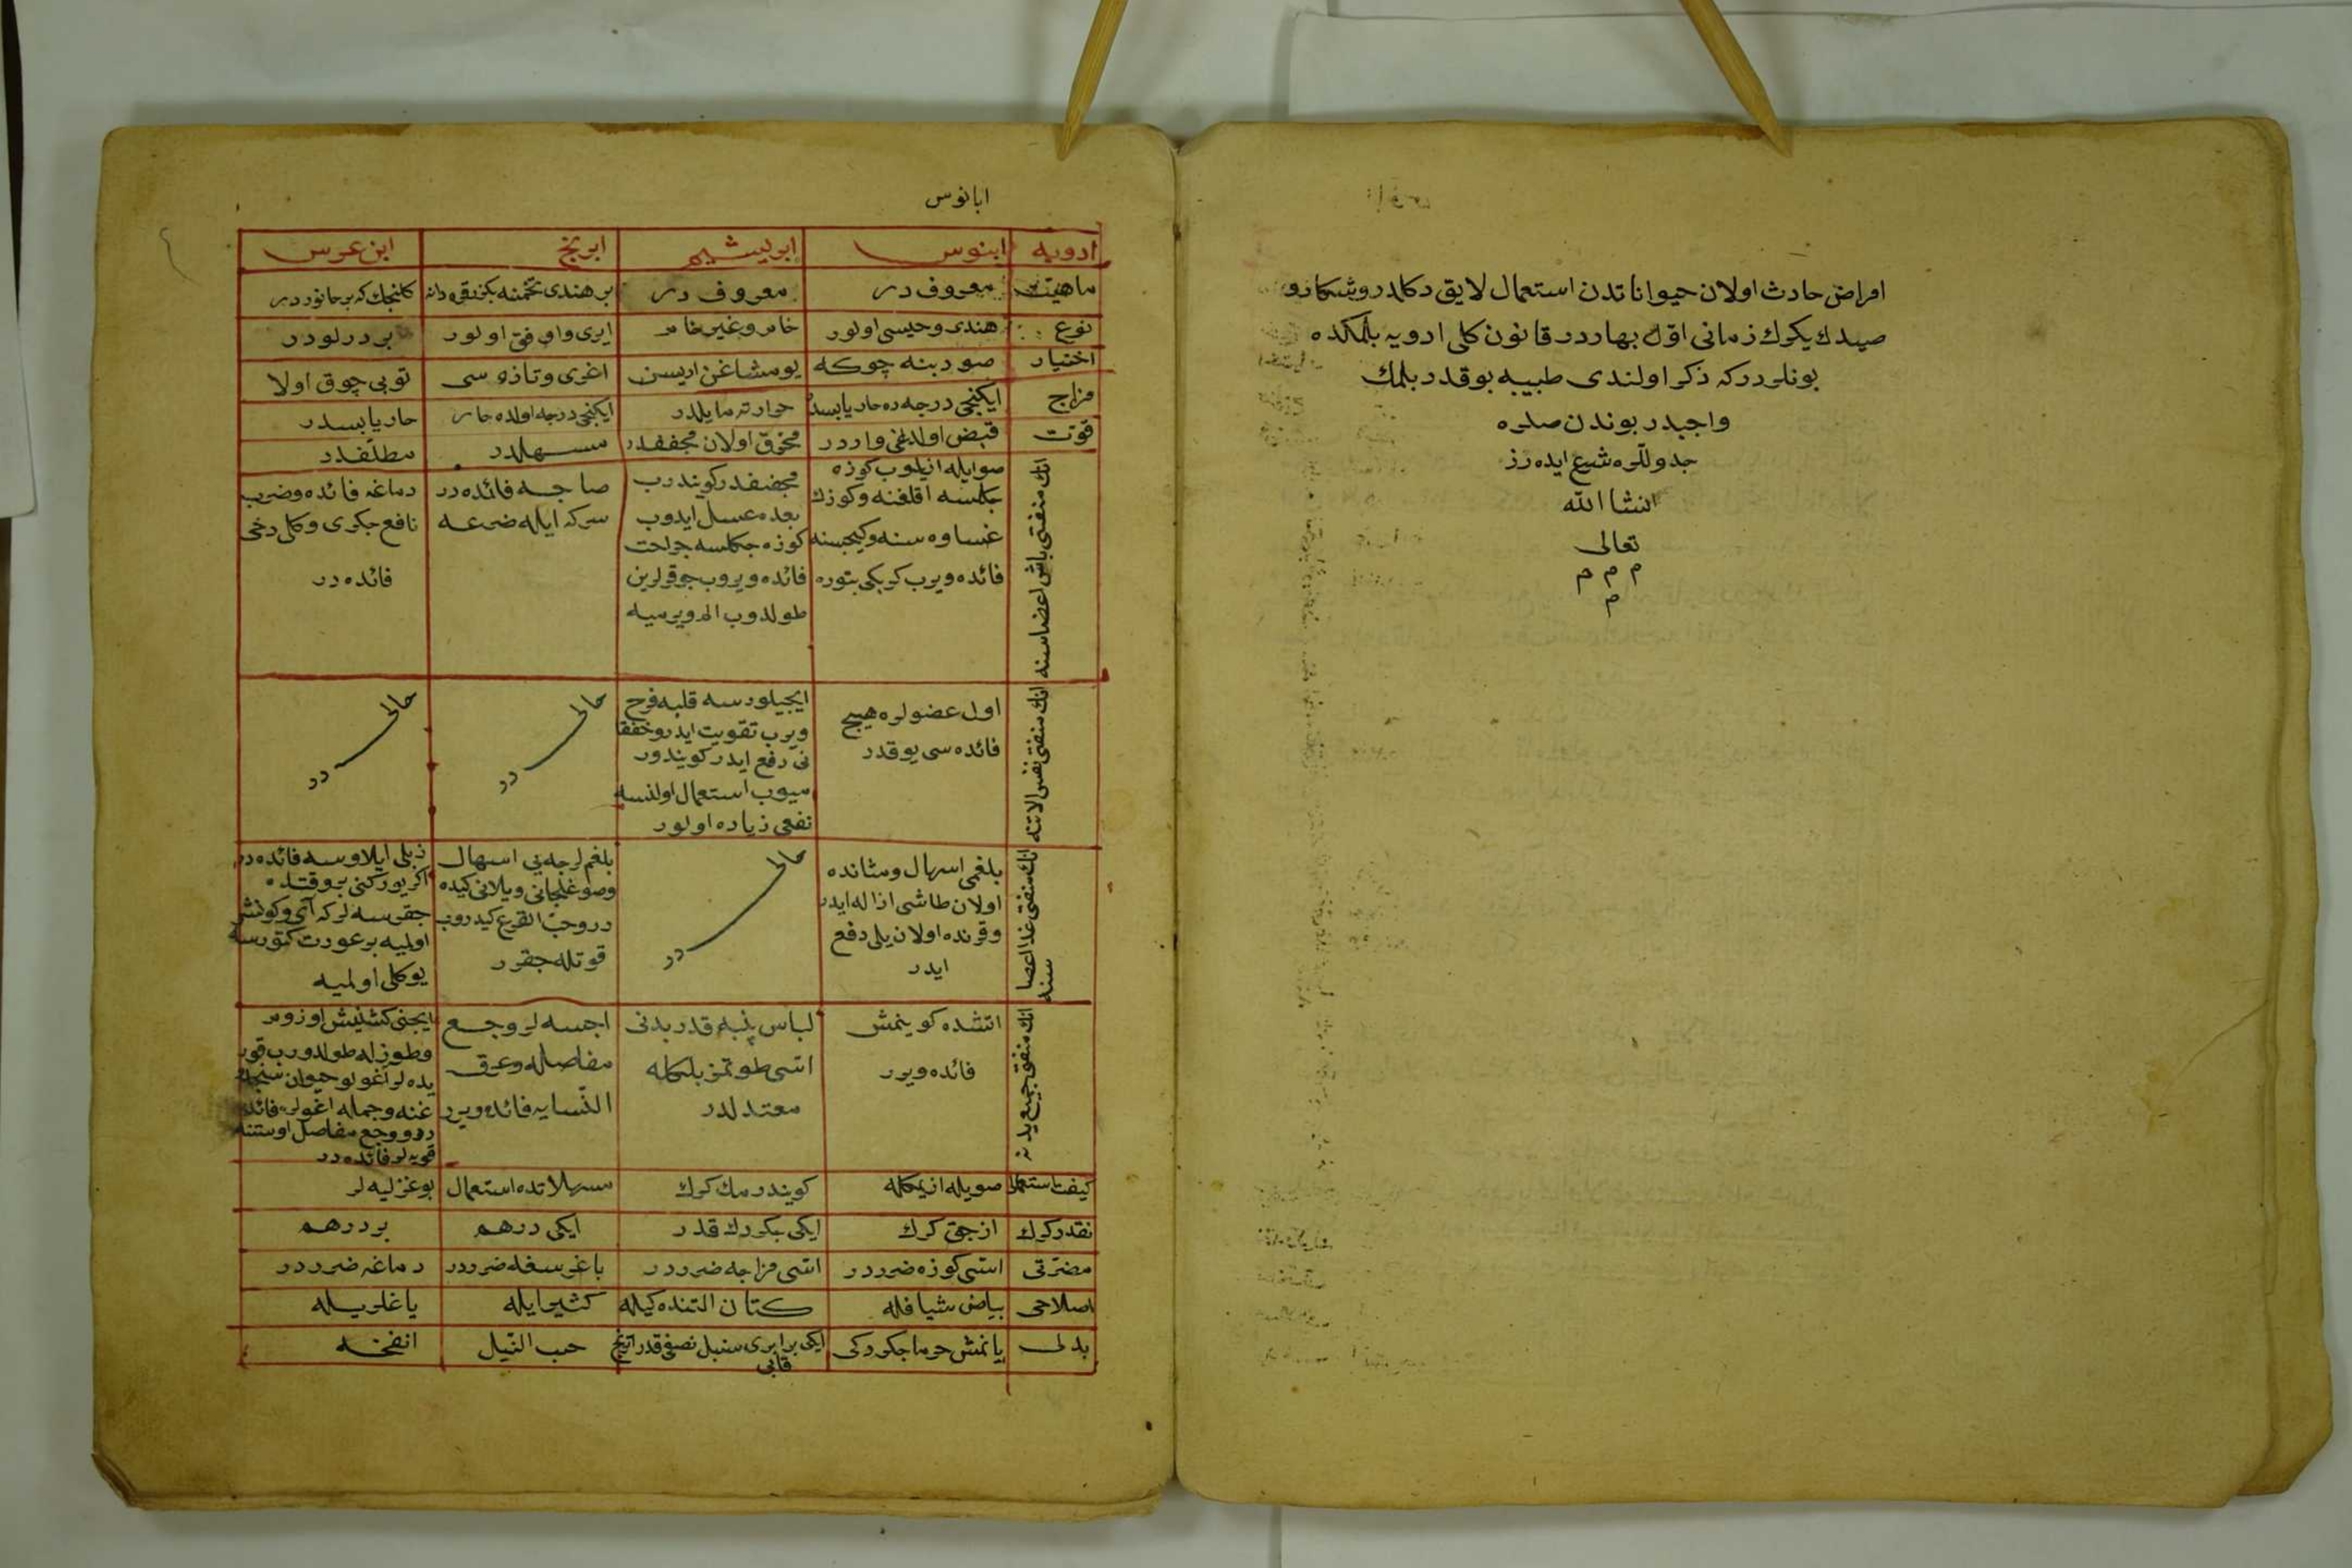 امراض حادث اولان حيواناتدن استعمال لايق دكلدر وشكارو
صيدك يكرك زمانی اوّل بهاردر قانون كلی ادويه بلمكده
بونلردركه ذكر اولندی طبيبه بوقدر بلمك
واجبدر بوندن صكره
جدوللره شروع ايده رز
انشا الله
تعالی
م م م
م
ابانوس
ادويه ابنوس ابريشيم ابرنج ابن عرس
ماهيت معروف در معروف در بر هندی تخمنه بكزر قره دانه كلنجك كه بر جانور در
نوع هندی وحبشی اولور خام وغير خام ايری واوفق اولور بر درلودر
اختيار صو دبنه چوكه يومشاغن اريسن اغری وتازه سی توبی چوق اولا
مزاج ايكنجی درجه ده حار يابسدر حرارته مايلدر ايكنجی درجه اولده حار حار يابسدر
قوّت قبض اولدغی واردر محرّق اولان مجففدر مسهلدر مطلّفدر
انك منفعتی باش اعضاسنه
صوايله ازيلوب كوزه
جكلسه اقلغنه وكوزك
غساوه سنه وكيجبسنه
فائده ويرب كربكی بتوره
مجففدر كويندرب
بعده عسل ايدوب
كوزه جكلسه جراحت
فائده ويروب جوقرلرين
طولدوب الم ويرميه
صاجه فائده در
سركه ايله ضرعه
دماغه فائده وضرب
نافع جكری وكل دخی
فائده در
انك منفعتی نفس الاتنه
اول عضولره هيچ
فائده سی يوقدر
ايجيلورسه قلبه فرح
ويرب تقويت ايدر وخفقا
نی دفع ايدر كويندور
ميوب استعمال اولنسه
نفعی زياده اولور
خالی در
خالی در
انك منفعتی غدا اعضا
سنه
بلغمی اسهال ومثانده
اولان طاشی ازاله ايدر
وقرنده اولان يلی دفع
ايدر
خالی در
بلغم لزجه يی اسهال
وصوغلجانی ويلانی كيده
در وحبّ القرع كيدروب
قوتله جقرر
زبلی ايلاوسه فائده در
اكر يوركنی بر وقتده
جقرسه لر كه آی وكونش
اولميه بر عورت كتورسه
يوكلی اولميه
انك منفعتی جميع بدنه
اتشده كوينمش
فائده ويرر
لباس پنبه قدر بدنی
اسّی طوتمز بلكله
معتدلدر
اجسه لر وجع
مفاصله وعرق
النّسايه فائده ويرر
ايجنی كشنيش اوزوم
وطوزله طولدورب قور
يده لر آغولو حيوان
غنه وجمله اغولره فائده
در ووجع مفاصل اوستنه
قويه لر فائده در
كيفت استعمال صويله ازيمكله كويندرمك كرك مسهلاتده استعمال بوغزليه لر
نقدر كرك از جق كرك ايكی بكردك قدر ايكی درهم بر درهم
مضرّتی اسّی كوزه ضرردر اسّی مزاجه ضرردر باغرسغله ضرردر دماغه ضرردر
اصلاحی بياض شيافله كتان التنده كيله كثيرا ايله ياغلريله
بدلی يانمش خرما جكردكی ايكی برابری سنبل نصفی قدر اترنج قابی حب النّيل انفخه